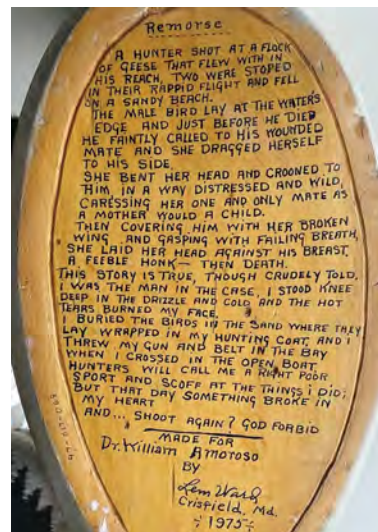 Remorse
A HUNTER SHOT AT A FLOCK
OF GEESE THAT FLEW WITH IN
HIS REACH, TWO WERE STOPED
IN THEIR RAPPID FLIGHT AND FELL
ON A SANDY BEACH.
THE MALE BIRD LAY AT THE WATER'S
EDGE AND JUST BEFORE HE DIED
HE FAINTLY CALLED TO HIS WOUNDED
MATE AND SHE DRAGGED HERSELF
TO HIS SIDE.
SHE BENT HER HEAD AND CROONED TO
HIM IN A WAY DISTRESSED AND WILD,
CARESSING HER ONE AND ONLY MATE AS
A MOTHER WOULD A CHILD.
THEN COVERING HIM WITH HER BROKEN
WING AND GASPING WITH FAILING BREATH,
SHE LAID HER HEAD AGAINST HIS BREAST,
A FEEBLE HONK - THEN DEATH.
THIS STORY IS TRUE, THOUGH CRUDELY TOLD,
I WAS THE MAN IN THE CASE, I STOOD KNEE
DEEP IN THE DRIZZLE AND COLD AND THE HOT
TEARS BURNED MY FACE.
I BURIED THE BIRDS IN THE SAND WHERE THEY
LAY WRAPPED IN MY HUNTING COAT, AND I
THREW MY GUN AND BELT IN THE BAY
WHEN I CROSSED IN THE OPEN BOAT
HUNTERS WILL CALL ME A RIGHT POOR
SPORT AND SCOFF AT THE THINGS I DID;
BUT THAT DAY SOMETHING BROKE IN
MY HEART
AND... SHOOT AGAIN? GOD FORBID
MADE FOR
Dr. William Amoroso
BY
Lem Ward
Crisfield, Md.
1975